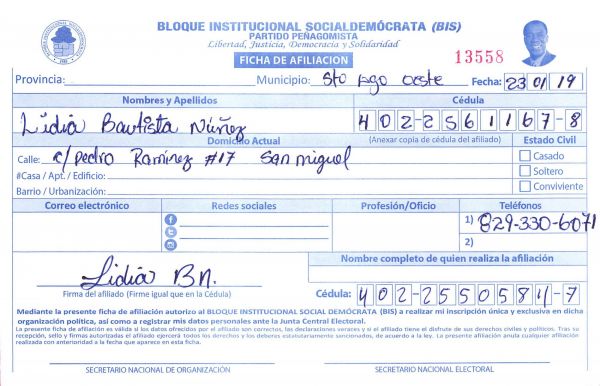 BLOQUE INSTITUCIONAL SOCIALDEMÓCRATA (BIS)
PARTIDO PEÑAGOMISTA
Libertad, Justicia, Democracia y Solidaridad
FICHA DE AFILIACION
13558
Provincia: Municipio: Sto Dgo Oeste Fecha: 23 01 19
Nombres y Apellidos Cédula
Lidia Bautista Núñez 402-2561167-8
Domicilio Actual (Anexar copia de cédula del afiliado) Estado Civil
Calle: c/ Pedro Ramírez #17 San Miguel Casado
#Casa / Apt. / Edificio: Soltero
Barrio / Urbanización: Conviviente
Correo electrónico Redes sociales Profesión/Oficio Teléfonos
1) 829-330-6071
2)
Nombre completo de quien realiza la afiliación
Lidia BN.
Firma del afiliado (Firme igual que en la Cédula) Cédula: 402-2550584-7
Mediante la presente ficha de afiliación autorizo al BLOQUE INSTITUCIONAL SOCIAL DEMÓCRATA (BIS) a realizar mi inscripción única y exclusiva en dicha
organización política, así como a registrar mis datos personales ante la Junta Central Electoral.
La presente ficha de afiliación es válida si los datos ofrecidos por el afiliado son correctos, las declaraciones veraces y si el afiliado tiene el disfrute de sus derechos civiles y políticos. Tras su
recepción, sello y firmas autorizadas el afiliado ejercerá todos los derechos y los deberes estatutariamente sancionados, de acuerdo a la ley. La presente afiliación anula cualquier afiliación
realizada con anterioridad a la fecha que aparece en esta ficha.
SECRETARIO NACIONAL DE ORGANIZACIÓN SECRETARIO NACIONAL ELECTORAL